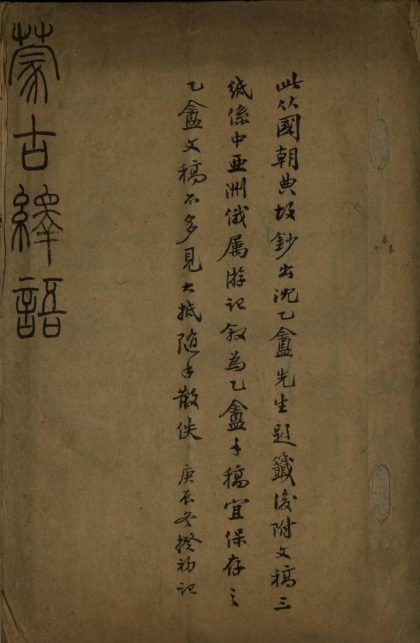 此从國朝典故鈔出沈乙盦先生題籤後附文稿三
紙係中亞洲俄属游記叙為乙盦手稿宜保存之
乙盦文稿不多見大抵隨手散佚 庚辰冬揆初記
蒙古繹語